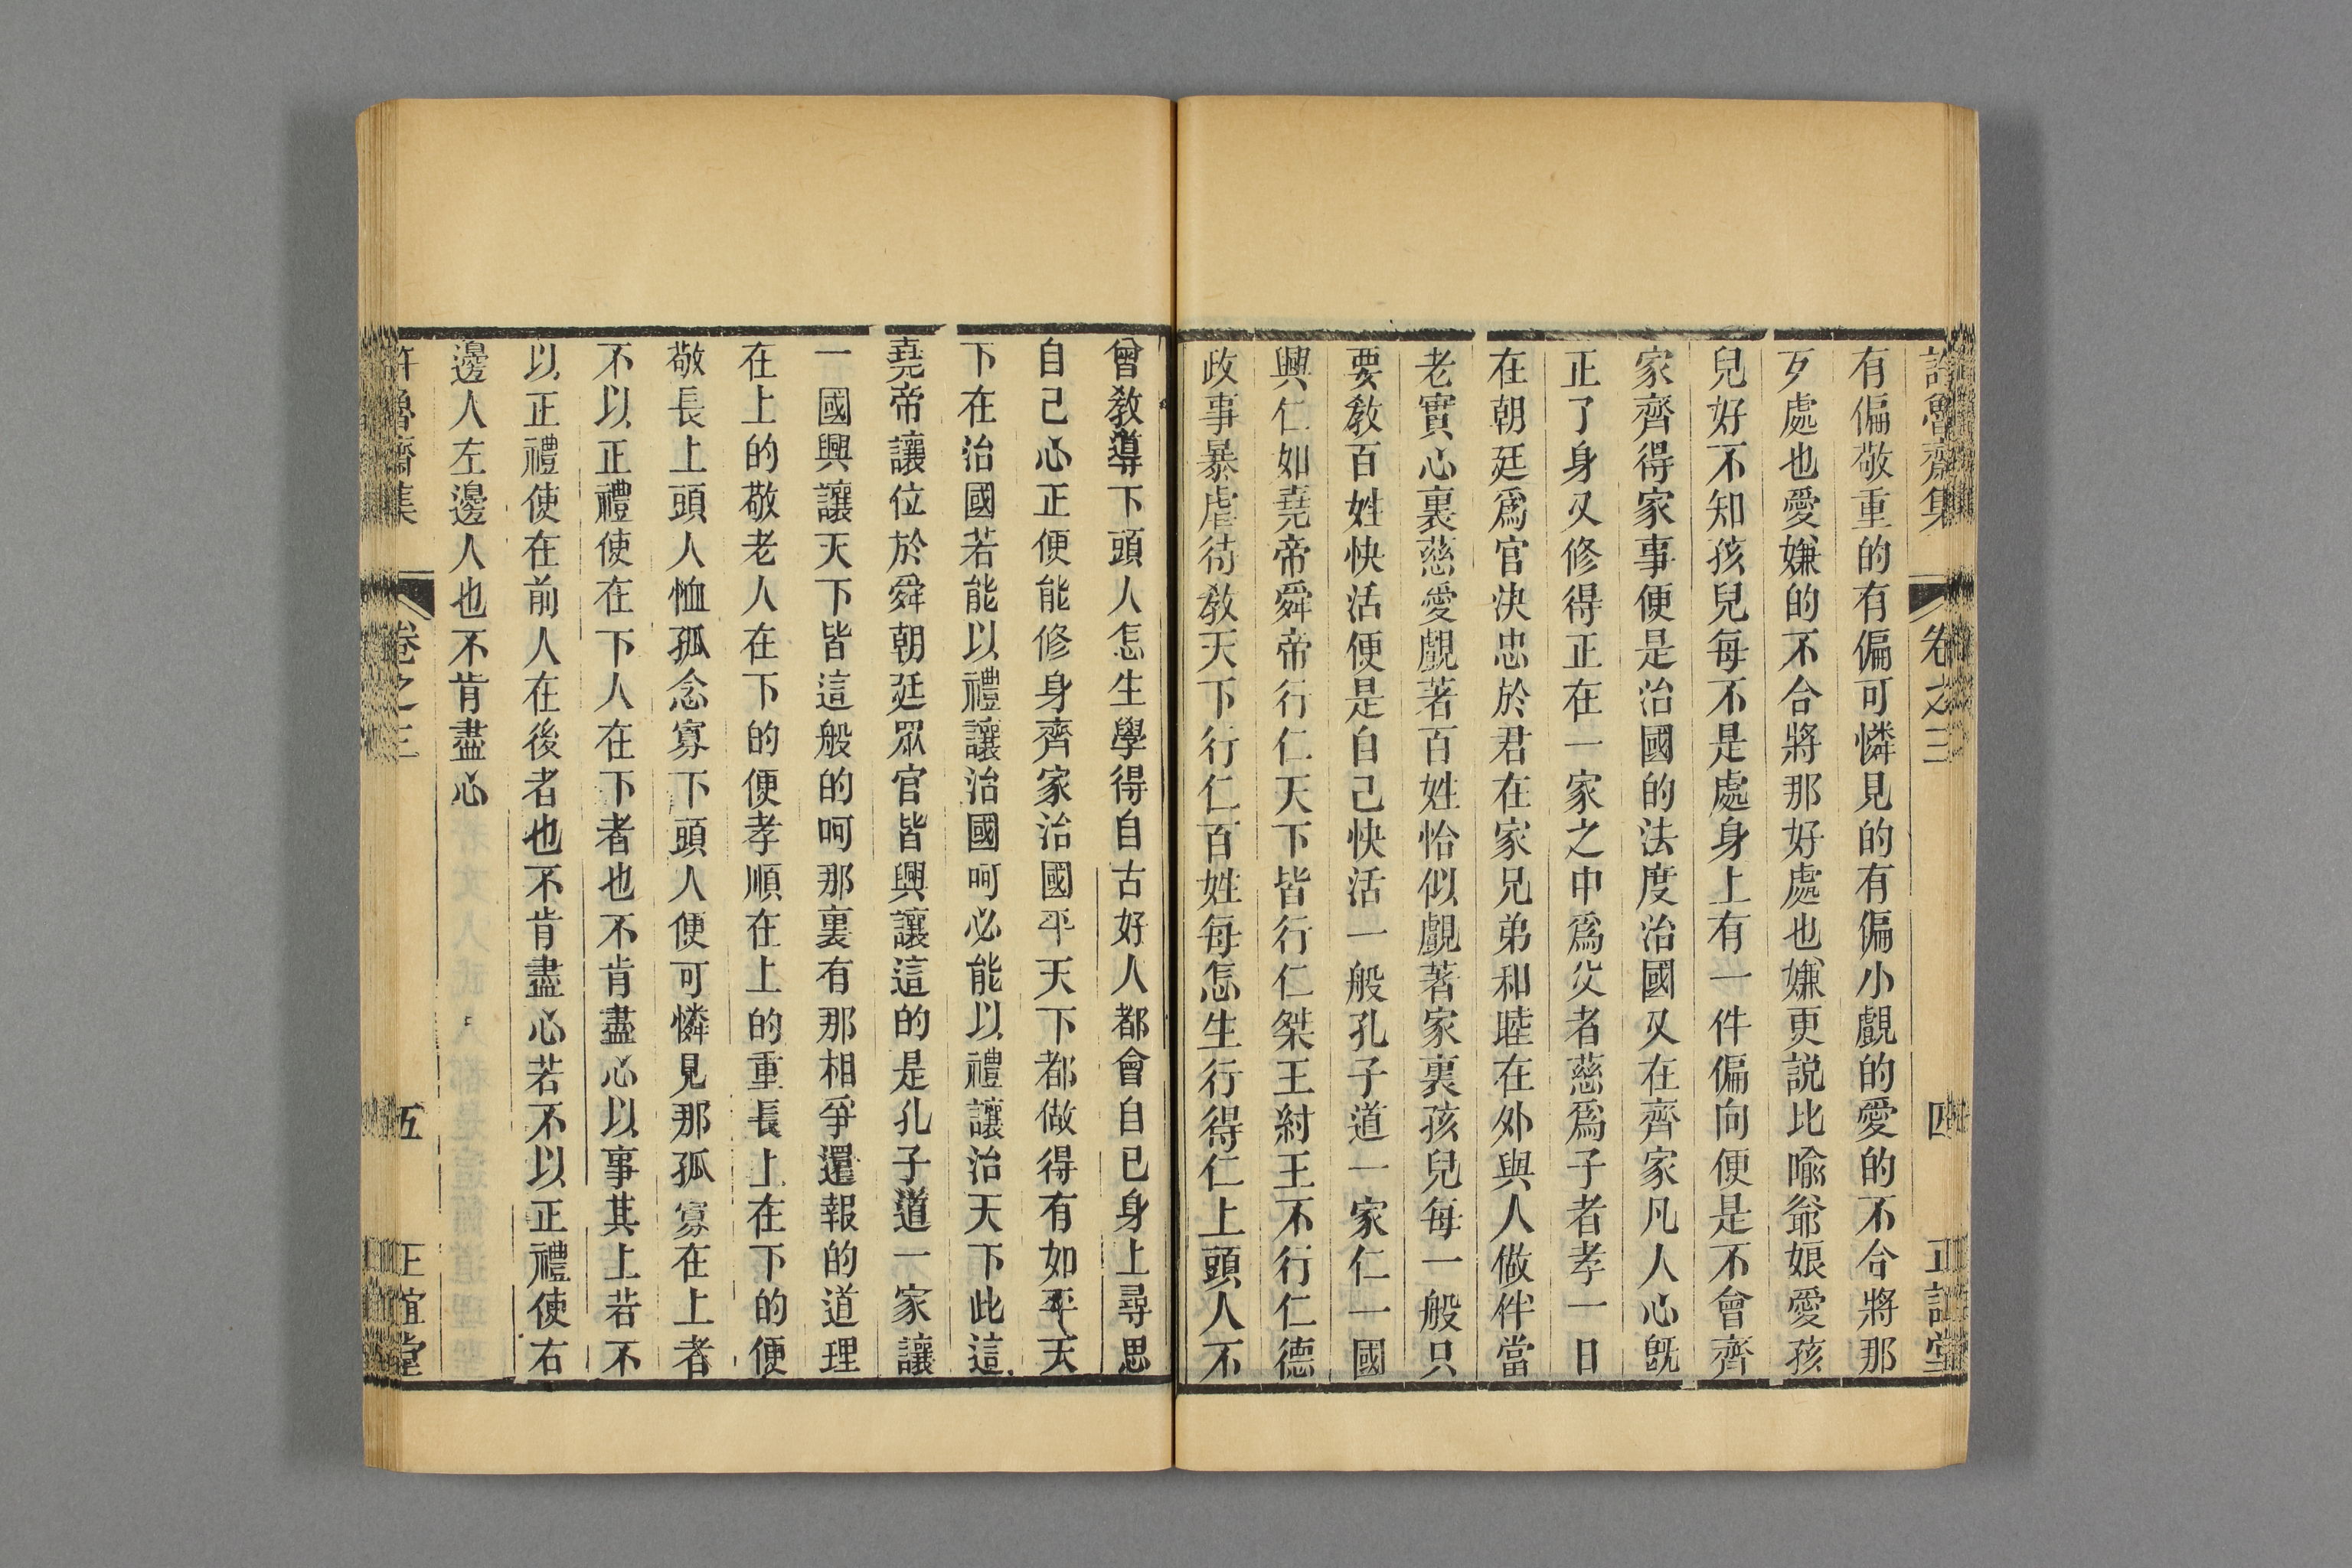 許魯齋集 卷之三 四 正誼堂
有偏敬重的有偏可憐見的有偏小覷的愛的不合將那
歹處也愛嫌的不合將那好處也嫌更説比喻爺娘愛孩
兒好不知孩兒每不是處身上有一件偏向便是不會齊
家齊得家事便是治國的法度治國又在齊家凡人心旣
正了身又修得正在一家之中爲父者慈爲子者孝一日
在朝廷爲官決忠於君在家兄弟和睦在外與人做伴當
老實心裏慈愛覷著百姓恰似覷著家裏孩兒每一般只
要敎百姓快活便是自己快活一般孔子道一家仁一國
興仁如堯帝舜帝行仁天下皆行仁桀王紂王不行仁德
政事暴虐待敎天下行仁百姓每怎生行得仁上頭人不
曾敎導下頭人怎生學得自古好人都會自己身上尋思
自己心正便能修身齊家治國平天下都做得有如平天
下在治國若能以禮讓治國呵必能以禮讓治天下此這
堯帝讓位於舜朝廷眾官皆興讓這的是孔子道一家讓
一國興讓天下皆這般的呵那裏有那相爭還報的道理
在上的敬老人在下的便孝順在上的重長上在下的便
敬長上頭人恤孤念寡下頭人便可憐見那孤寡在上者
不以正禮使在下人在下者也不肯盡心以事其上若不
以正禮使在前人在後者也不肯盡心若不以正禮使右
邊人左邊人也不肯盡心
許魯齋集 卷之三 五 正誼堂